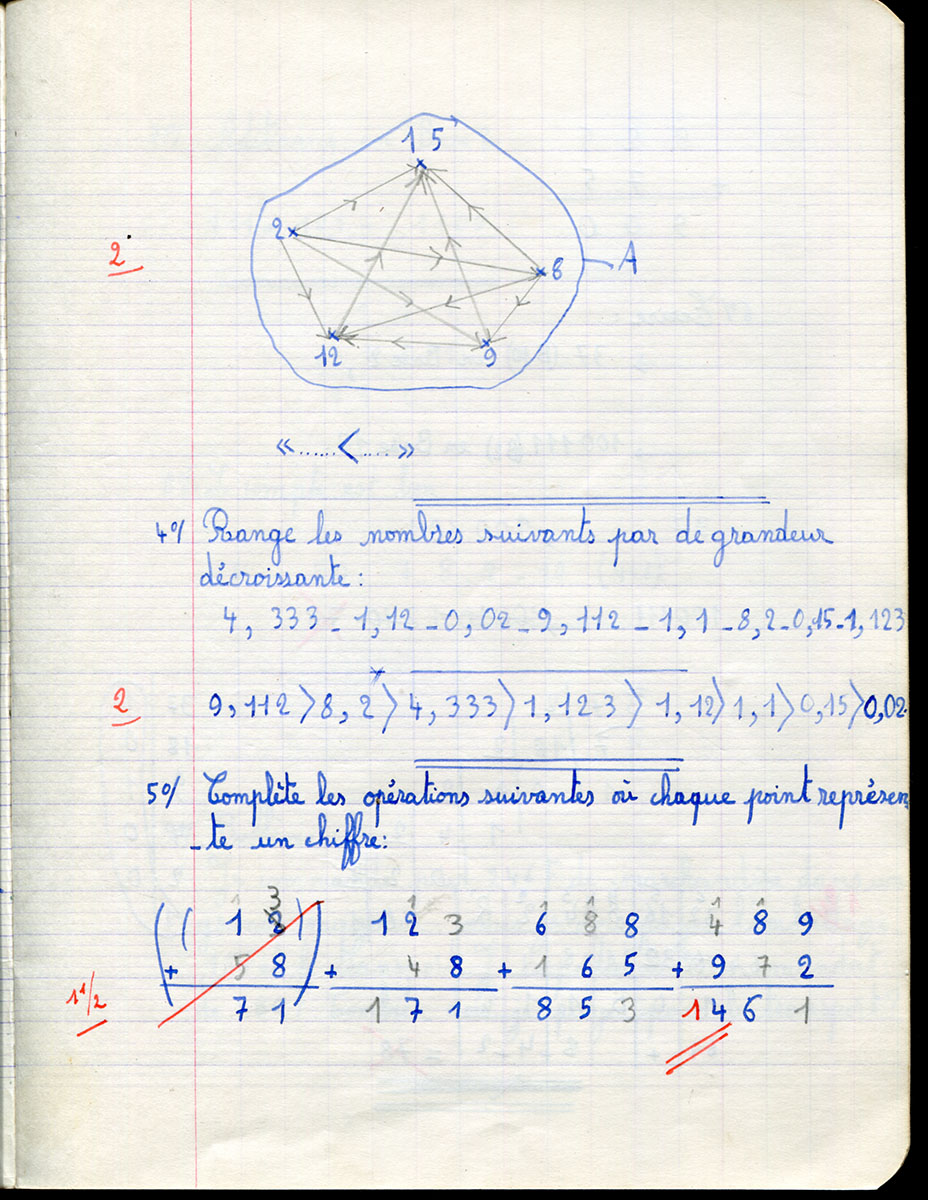 15
2
2
8
A
12
9
«......<....»
4°/ Range les nombres suivants par de grandeur
décroissante :
4, 333 - 1,12 - 0, 02 - 9, 112 - 1, 1 - 8, 2 - 0,15 - 1, 123
2
9, 112 > 8, 2 > 4, 333 > 1, 123 > 1, 12 > 1, 1 > 0, 15 > 0,02.
5°/ Complète les opérations suivantes où chaque point représen
-te un chiffre:
1 3 1 1 1 1 1
( ( 1 2 ) 1 2 3 6 8 8 4 8 9
+ 5 8 ) + 4 8 + 1 6 5 + 9 7 2
1 1/2
7 1 1 7 1 8 5 3 1 4 6 1